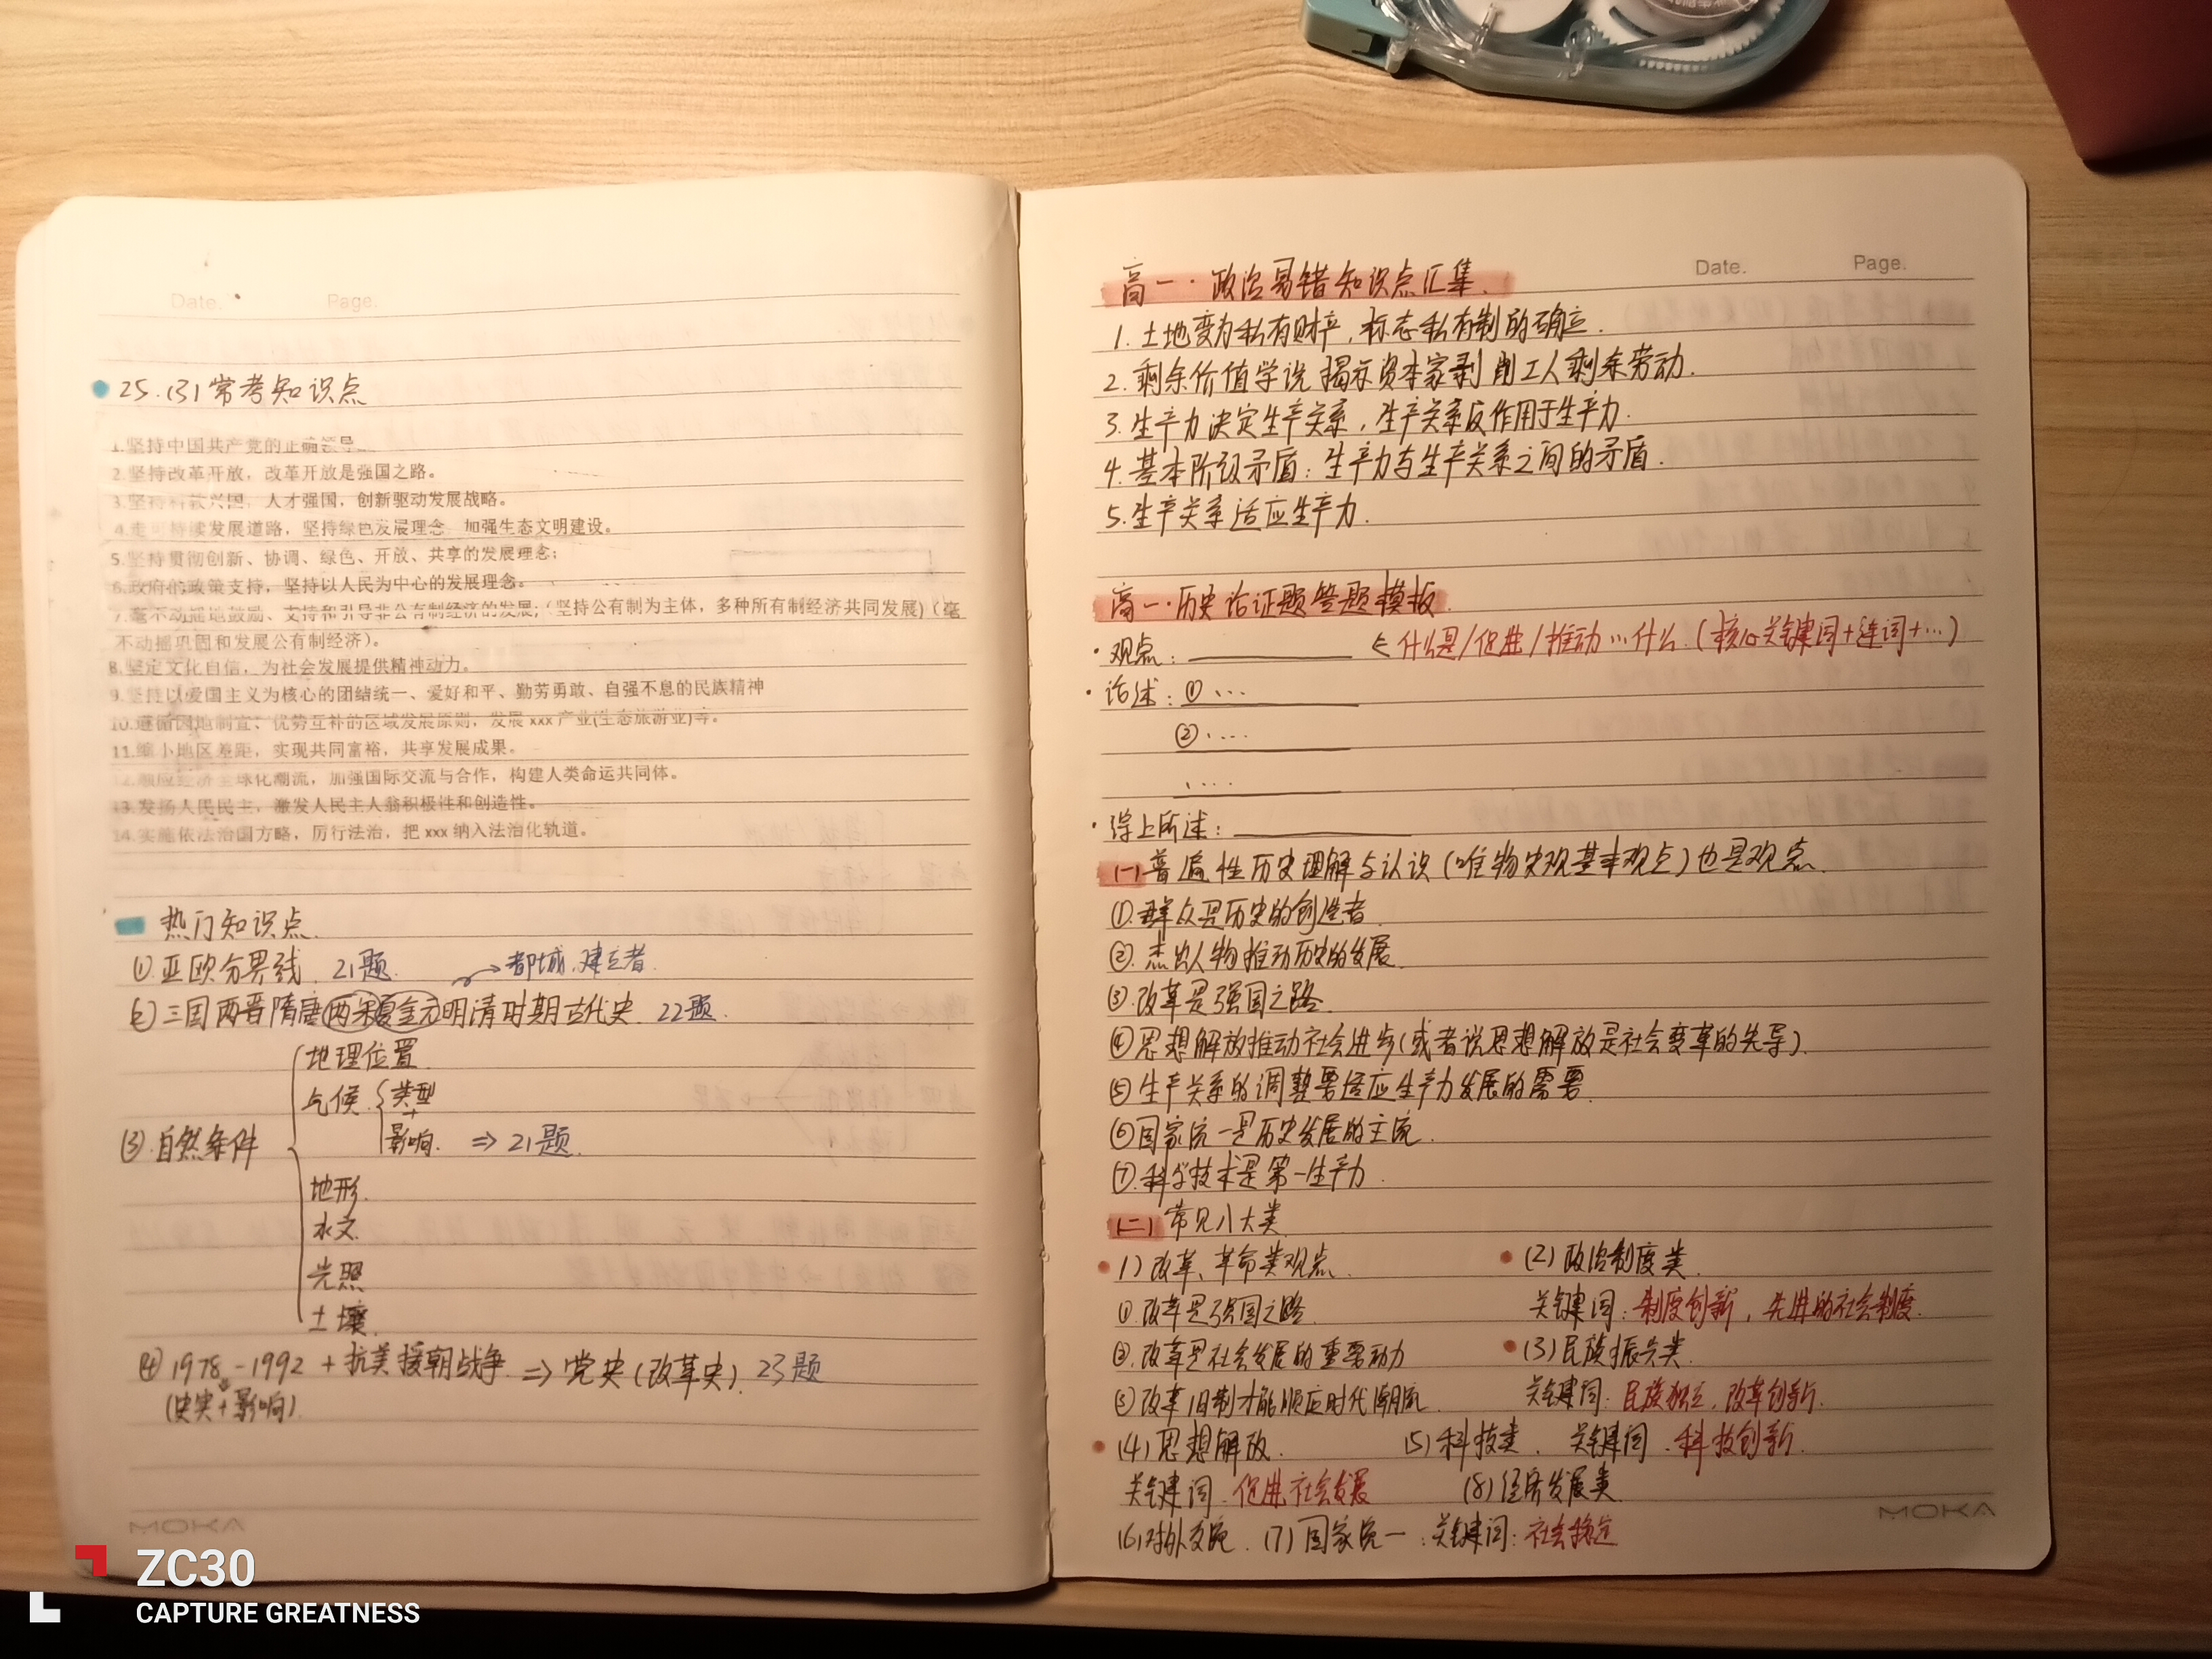 Date. Page.
25.(3)常考知识点
1.坚持中国共产党的正确领导。
2.坚持改革开放，改革开放是强国之路。
3.坚持科教兴国，人才强国，创新驱动发展战略。
4.走可持续发展道路，坚持绿色发展理念，加强生态文明建设。
5.坚持贯彻创新、协调、绿色、开放、共享的发展理念；
6.政府的政策支持，坚持以人民为中心的发展理念。
7.毫不动摇地鼓励、支持和引导非公有制经济的发展;（坚持公有制为主体，多种所有制经济共同发展)（毫
不动摇巩固和发展公有制经济）。
8.坚定文化自信，为社会发展提供精神动力。
9.坚持以爱国主义为核心的团结统一、爱好和平、勤劳勇敢、自强不息的民族精神
10.遵循因地制宜、优势互补的区域发展原则，发展 xxx 产业(生态旅游业)等。
11.缩小地区差距，实现共同富裕，共享发展成果。
12.顺应经济全球化潮流，加强国际交流与合作，构建人类命运共同体。
13.发扬人民民主，激发人民主人翁积极性和创造性。
14.实施依法治国方略，厉行法治，把 xxx 纳入法治化轨道。
热门知识点.
①亚欧分界线. 21题.
→都城.建立者.
②三国两晋隋唐两宋夏金元明清时期古代史. 22题.
地理位置.
气候.
类型
+
影响. ⇒21题.
③.自然条件
地形.
水文.
光照
土壤.
④1978-1992 +抗美援朝战争. ⇒党史(改革史). 23题
(史实+影响).
MOKA
Date. Page.
高一·政治易错知识点汇集.
1.土地变为私有财产,标志私有制的确立.
2.剩余价值学说揭示资本家剥削工人剩余劳动.
3.生产力决定生产关系,生产关系反作用于生产力.
4.基本阶级矛盾：生产力与生产关系之间的矛盾.
5.生产关系适应生产力.
高一·历史论证题答题模板.
·观点：________ ←什么是/促进/推动…什么.(核心关键词+连词+…)
·论述：①…
②….
….
·综上所述：________
(一)普遍性历史理解与认识(唯物史观基本观点)也是观点.
①.群众是历史的创造者.
②.杰出人物推动历史的发展.
③.改革是强国之路.
④思想解放推动社会进步(或者说思想解放是社会变革的先导).
⑤生产关系的调整要适应生产力发展的需要.
⑥国家统一是历史发展的主流.
⑦.科学技术是第一生产力.
(二)常见八大类
1)改革、革命类观点. (2)政治制度类.
①改革是强国之路. 关键词：制度创新，先进的社会制度.
②.改革是社会发展的重要动力 (3)民族振兴类.
③改革旧制才能顺应时代潮流. 关键词：民族独立.改革创新.
(4)思想解放. (5)科技类. 关键词.科技创新.
关键词.促进社会发展 (8)经济发展类.
(6)对外交流. (7)国家统一：关键词：社会稳定
MOKA
ZC30
CAPTURE GREATNESS